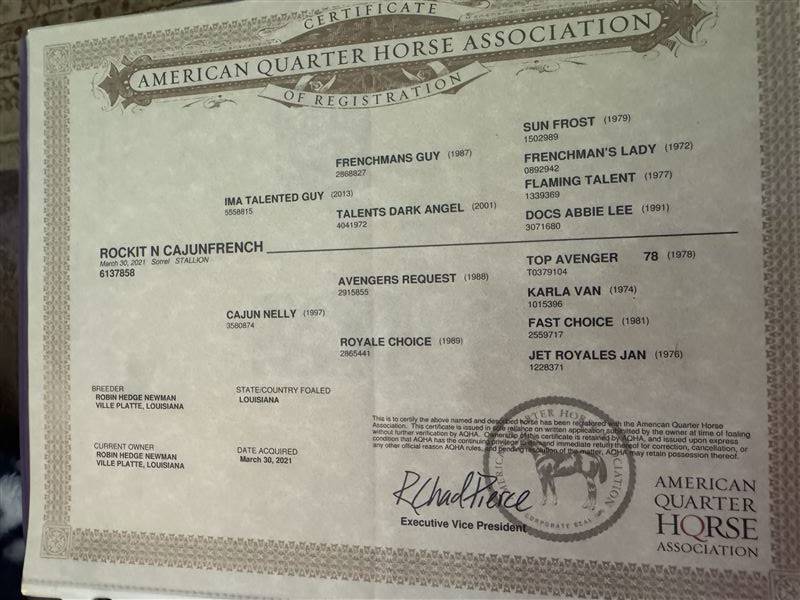 CERTIFICATE
AMERICAN QUARTER HORSE ASSOCIATION
OF REGISTRATION
SUN FROST (1979)
1502989
FRENCHMANS GUY (1987)
2868827
FRENCHMAN'S LADY (1972)
0892942
IMA TALENTED GUY (2013)
5558815
FLAMING TALENT (1977)
1339369
TALENTS DARK ANGEL (2001)
4041972
DOCS ABBIE LEE (1991)
3071680
ROCKIT N CAJUNFRENCH
March 30, 2021 Sorrel STALLION
6137858
TOP AVENGER 78 (1978)
T0379104
AVENGERS REQUEST (1988)
2915855
KARLA VAN (1974)
1015396
CAJUN NELLY (1997)
3580874
FAST CHOICE (1981)
2559717
ROYALE CHOICE (1989)
2865441
JET ROYALES JAN (1976)
1228371
BREEDER
ROBIN HEDGE NEWMAN
VILLE PLATTE, LOUISIANA
STATE/COUNTRY FOALED
LOUISIANA
CURRENT OWNER
ROBIN HEDGE NEWMAN
VILLE PLATTE, LOUISIANA
DATE ACQUIRED
March 30, 2021
This is to certify the above named and described horse has been registered with the American Quarter Horse
Association. This certificate is issued in sole reliance on written application submitted by the owner at time of foaling
without further verification by AQHA. Ownership of this certificate is retained by AQHA, and issued upon express
condition that AQHA has the continuing privilege to demand immediate return thereof for correction, cancellation, or
any other official reason AQHA rules, and pending resolution of the matter, AQHA may retain possession thereof.
R Chad Pierce
Executive Vice President
AMERICAN QUARTER HORSE ASSOCIATION
CORPORATE SEAL
AMERICAN
QUARTER
HORSE
ASSOCIATION